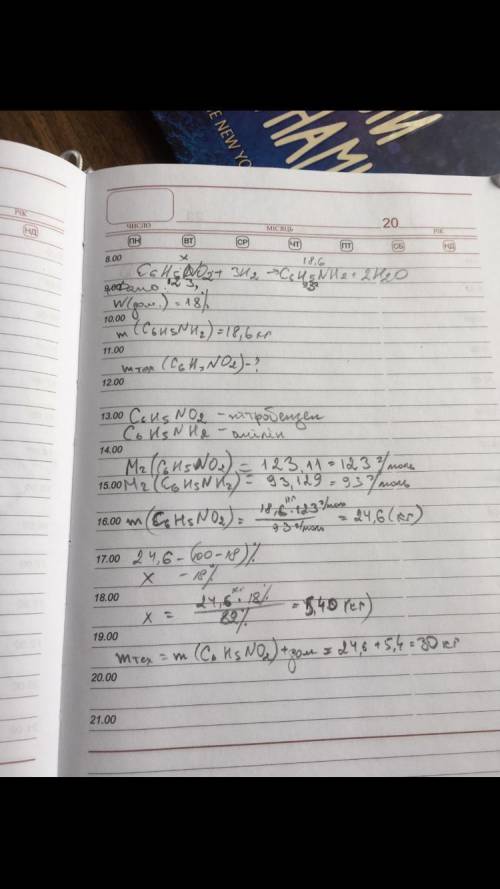 ИЙ
НАМИ
THE NEW YO
20
РІК
ЧИСЛО МІСЯЦЬ РІК
НД
ПН ВТ СР ЧТ ПТ СБ НД
8.00
x 18,6
C6H5NO2 + 3H2 → C6H5NH2 + 2H2O
9.00 Дано: 123 93
W(дом.) = 18%
10.00
m (C6H5NH2) = 18,6 кг
11.00
m тех (C6H5NO2) - ?
12.00
13.00 C6H5NO2 - нітробензен
C6H5NH2 - анілін
14.00
Mr (C6H5NO2) = 123,11 = 123 г/моль
15.00 Mr (C6H5NH2) = 93,129 = 93 г/моль
16.00 m (C6H5NO2) = 18,6 кг · 123 г/моль / 93 г/моль = 24,6 (кг)
17.00 24,6 - (100 - 18)%
x - 18%
18.00
x = 24,6 кг · 18% / 82% = 5,40 (кг)
19.00
m тех = m (C6H5NO2) + дом = 24,6 + 5,4 = 30 кг
20.00
21.00